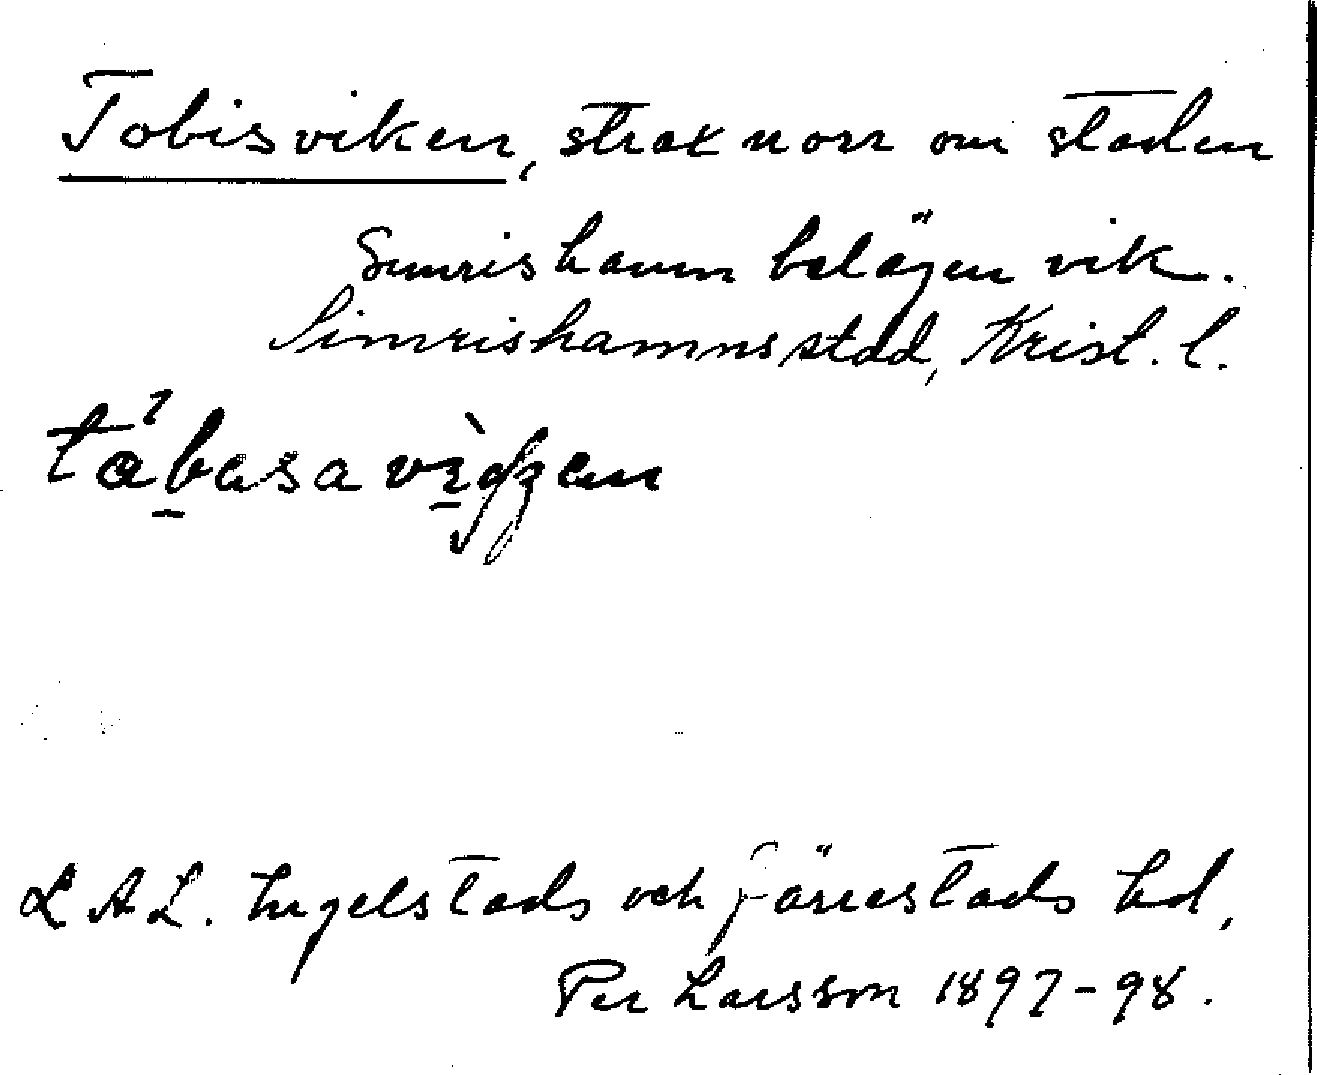 Tobisviken, strax norr om staden
Simrishamn belägen vik.
Simrishamns stad, Krist. l.
LAL. Ingelstads och Järrestads hd,
Per Larsson 1897-98.